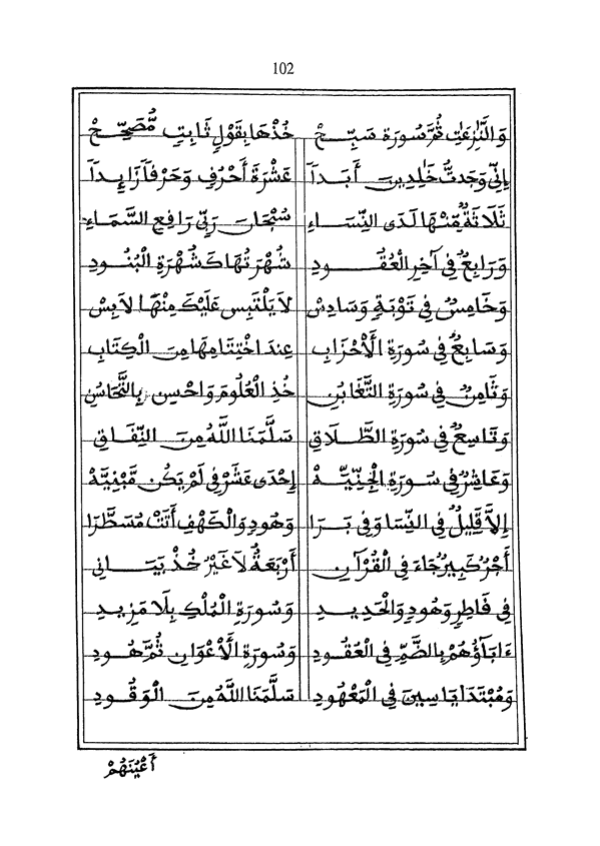 102
وَالنَّٰزِعَٰتِ ثُمَّ سُورَةِ سَبِّحْ خُذْهَا بِقَوْلٍ ثَابِتٍ مُّصَحَّحْ
إِنِّي وَجَدتُّ خَٰلِدِينَ أَبَدَا عَشْرَةَ أَحْرُفٍ وَحَرْفاً زَايِدَا
ثَلَاثَةٌ مِنْهَا لَدَى النِّسَاءِ سُبْحَانَ رَبِّي رَافِعِ السَّمَاءِ
وَرَابِعٌ فِي آخِرِ الْعُقُودِ شُهْرَتُهَا كَشُهْرَةِ الْبُنُودِ
وَخَامِسٌ فِي تَوْبَةٍ وَسَادِسْ لَا يَلْتَبِسْ عَلَيْكَ مِنْهَا لَابِسْ
وَسَابِعٌ فِي سُورَةِ الْأَحْزَابِ عِندَ اخْتِتَامِهَا مِنَ الْكِتَابِ
وَثَامِنٌ فِي سُورَةِ التَّغَابُنِ خُذِ الْعُلُومَ وَاحْسِن بِالتَّحَاسُنِ
وَتَاسِعٌ فِي سُورَةِ الطَّلَاقِ سَلَّمَنَا اللَّهُ مِنَ النِّفَاقِ
وَعَاشِرٌ فِي سُورَةِ الْجِنِّيَّهْ إِحْدَى عَشَرْ فِي لَمْ يَكُن مَّبْنِيَّهْ
إِلَّا قَلِيلٌ فِي النِّسَا وَفِي بَرَا وَهُودٍ وَالْكَهْفِ أَتَتْ مُسَطَّرَا
أَجْرٌ كَبِيرٌ جَاءَ فِي الْقُرْآنِ أَرْبَعَةٌ لَا غَيْرُ خُذْ بَيَانِي
فِي فَاطِرٍ وَهُودٍ وَالْحَدِيدِ وَسُورَةِ الْمُلْكِ بِلَا مَزِيدِ
ءَابَآؤُهُمْ بِالضَّمِّ فِي الْعُقُودِ وَسُورَةِ الْأَعْوَانِ ثُمَّ هُودِ
وَمُبْتَدَا يَاسِينَ فِي الْمَعْهُودِ سَلَّمَنَا اللَّهُ مِنَ الْوَقُودِ
أَعْيُنَهُمْ